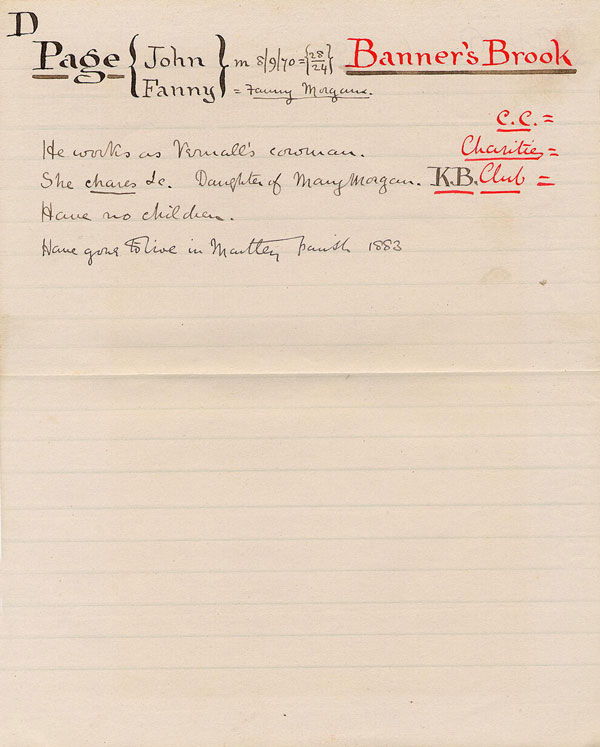 D
Page { John Fanny } m 8/9/70 = {28/24} Banner's Brook
= Fanny Morgan.
C.C. =
Charities =
He works as Vernall's cowman.
She chares &c. Daughter of Mary Morgan. K.B. Club =
Have no children.
Have gone to live in Martley parish 1883